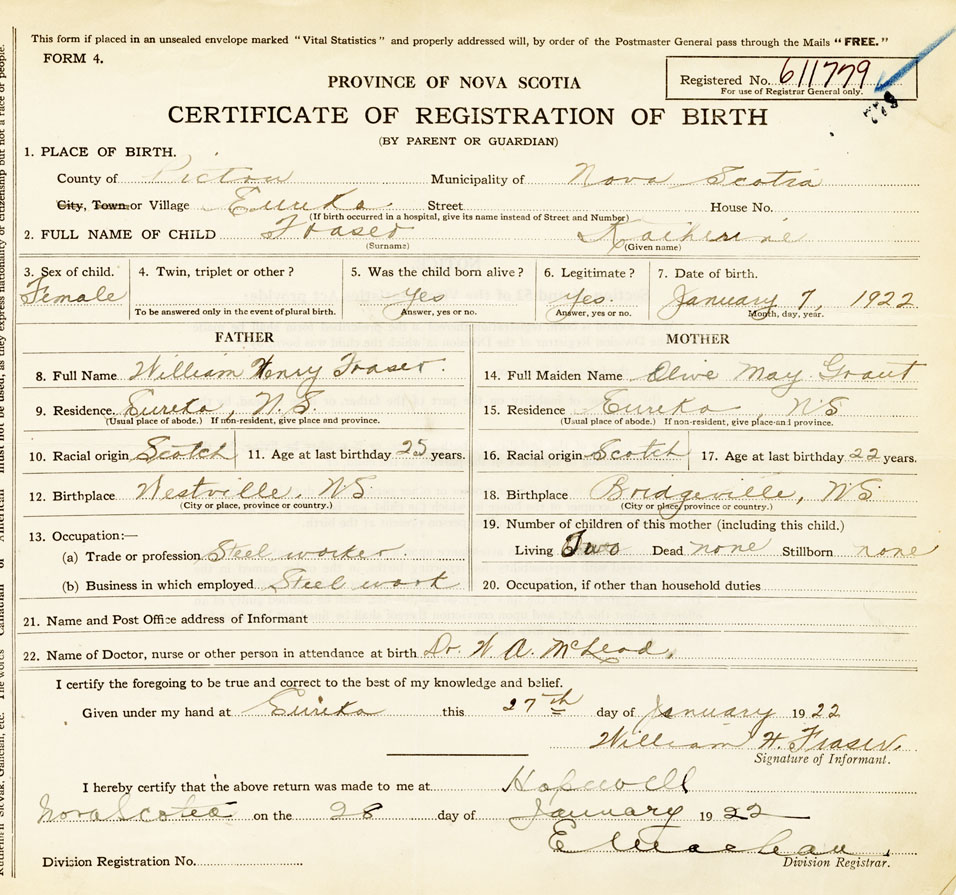 This form if placed in an unsealed envelope marked "Vital Statistics" and properly addressed will, by order of the Postmaster General pass through the Mails "FREE."
FORM 4.
Registered No. 611779
For use of Registrar General only.
779
PROVINCE OF NOVA SCOTIA
CERTIFICATE OF REGISTRATION OF BIRTH
(BY PARENT OR GUARDIAN)
1. PLACE OF BIRTH.
County of Pictou Municipality of Nova Scotia
City, Town or Village Eureka Street House No.
(If birth occurred in a hospital, give its name instead of Street and Number)
2. FULL NAME OF CHILD Fraser Katherine
(Surname) (Given name)
3. Sex of child. 4. Twin, triplet or other? 5. Was the child born alive? 6. Legitimate? 7. Date of birth.
Female Yes Yes. January 7, 1922
To be answered only in the event of plural birth. Answer, yes or no. Answer, yes or no. Month, day, year.
FATHER MOTHER
8. Full Name William Henry Fraser. 14. Full Maiden Name Olive May Grant
9. Residence. Eureka, N.S. 15. Residence Eureka, NS
(Usual place of abode.) If non-resident, give place and province. (Usual place of abode.) If non-resident, give place and province.
10. Racial origin Scotch 11. Age at last birthday 25 years. 16. Racial origin Scotch 17. Age at last birthday 22 years.
12. Birthplace Westville, NS 18. Birthplace Bridgeville, NS
(City or place, province or country.) (City or place, province or country.)
13. Occupation:— 19. Number of children of this mother (including this child.)
(a) Trade or profession Steel worker. Living Two Dead none Stillborn none
(b) Business in which employed Steel work 20. Occupation, if other than household duties
21. Name and Post Office address of Informant
22. Name of Doctor, nurse or other person in attendance at birth Dr. W. A. McLeod.
I certify the foregoing to be true and correct to the best of my knowledge and belief.
Given under my hand at Eureka this 27th day of January 1922
William H. Fraser.
Signature of Informant.
I hereby certify that the above return was made to me at Hopewell
Nova Scotia on the 28 day of January 1922
Division Registration No. Division Registrar.